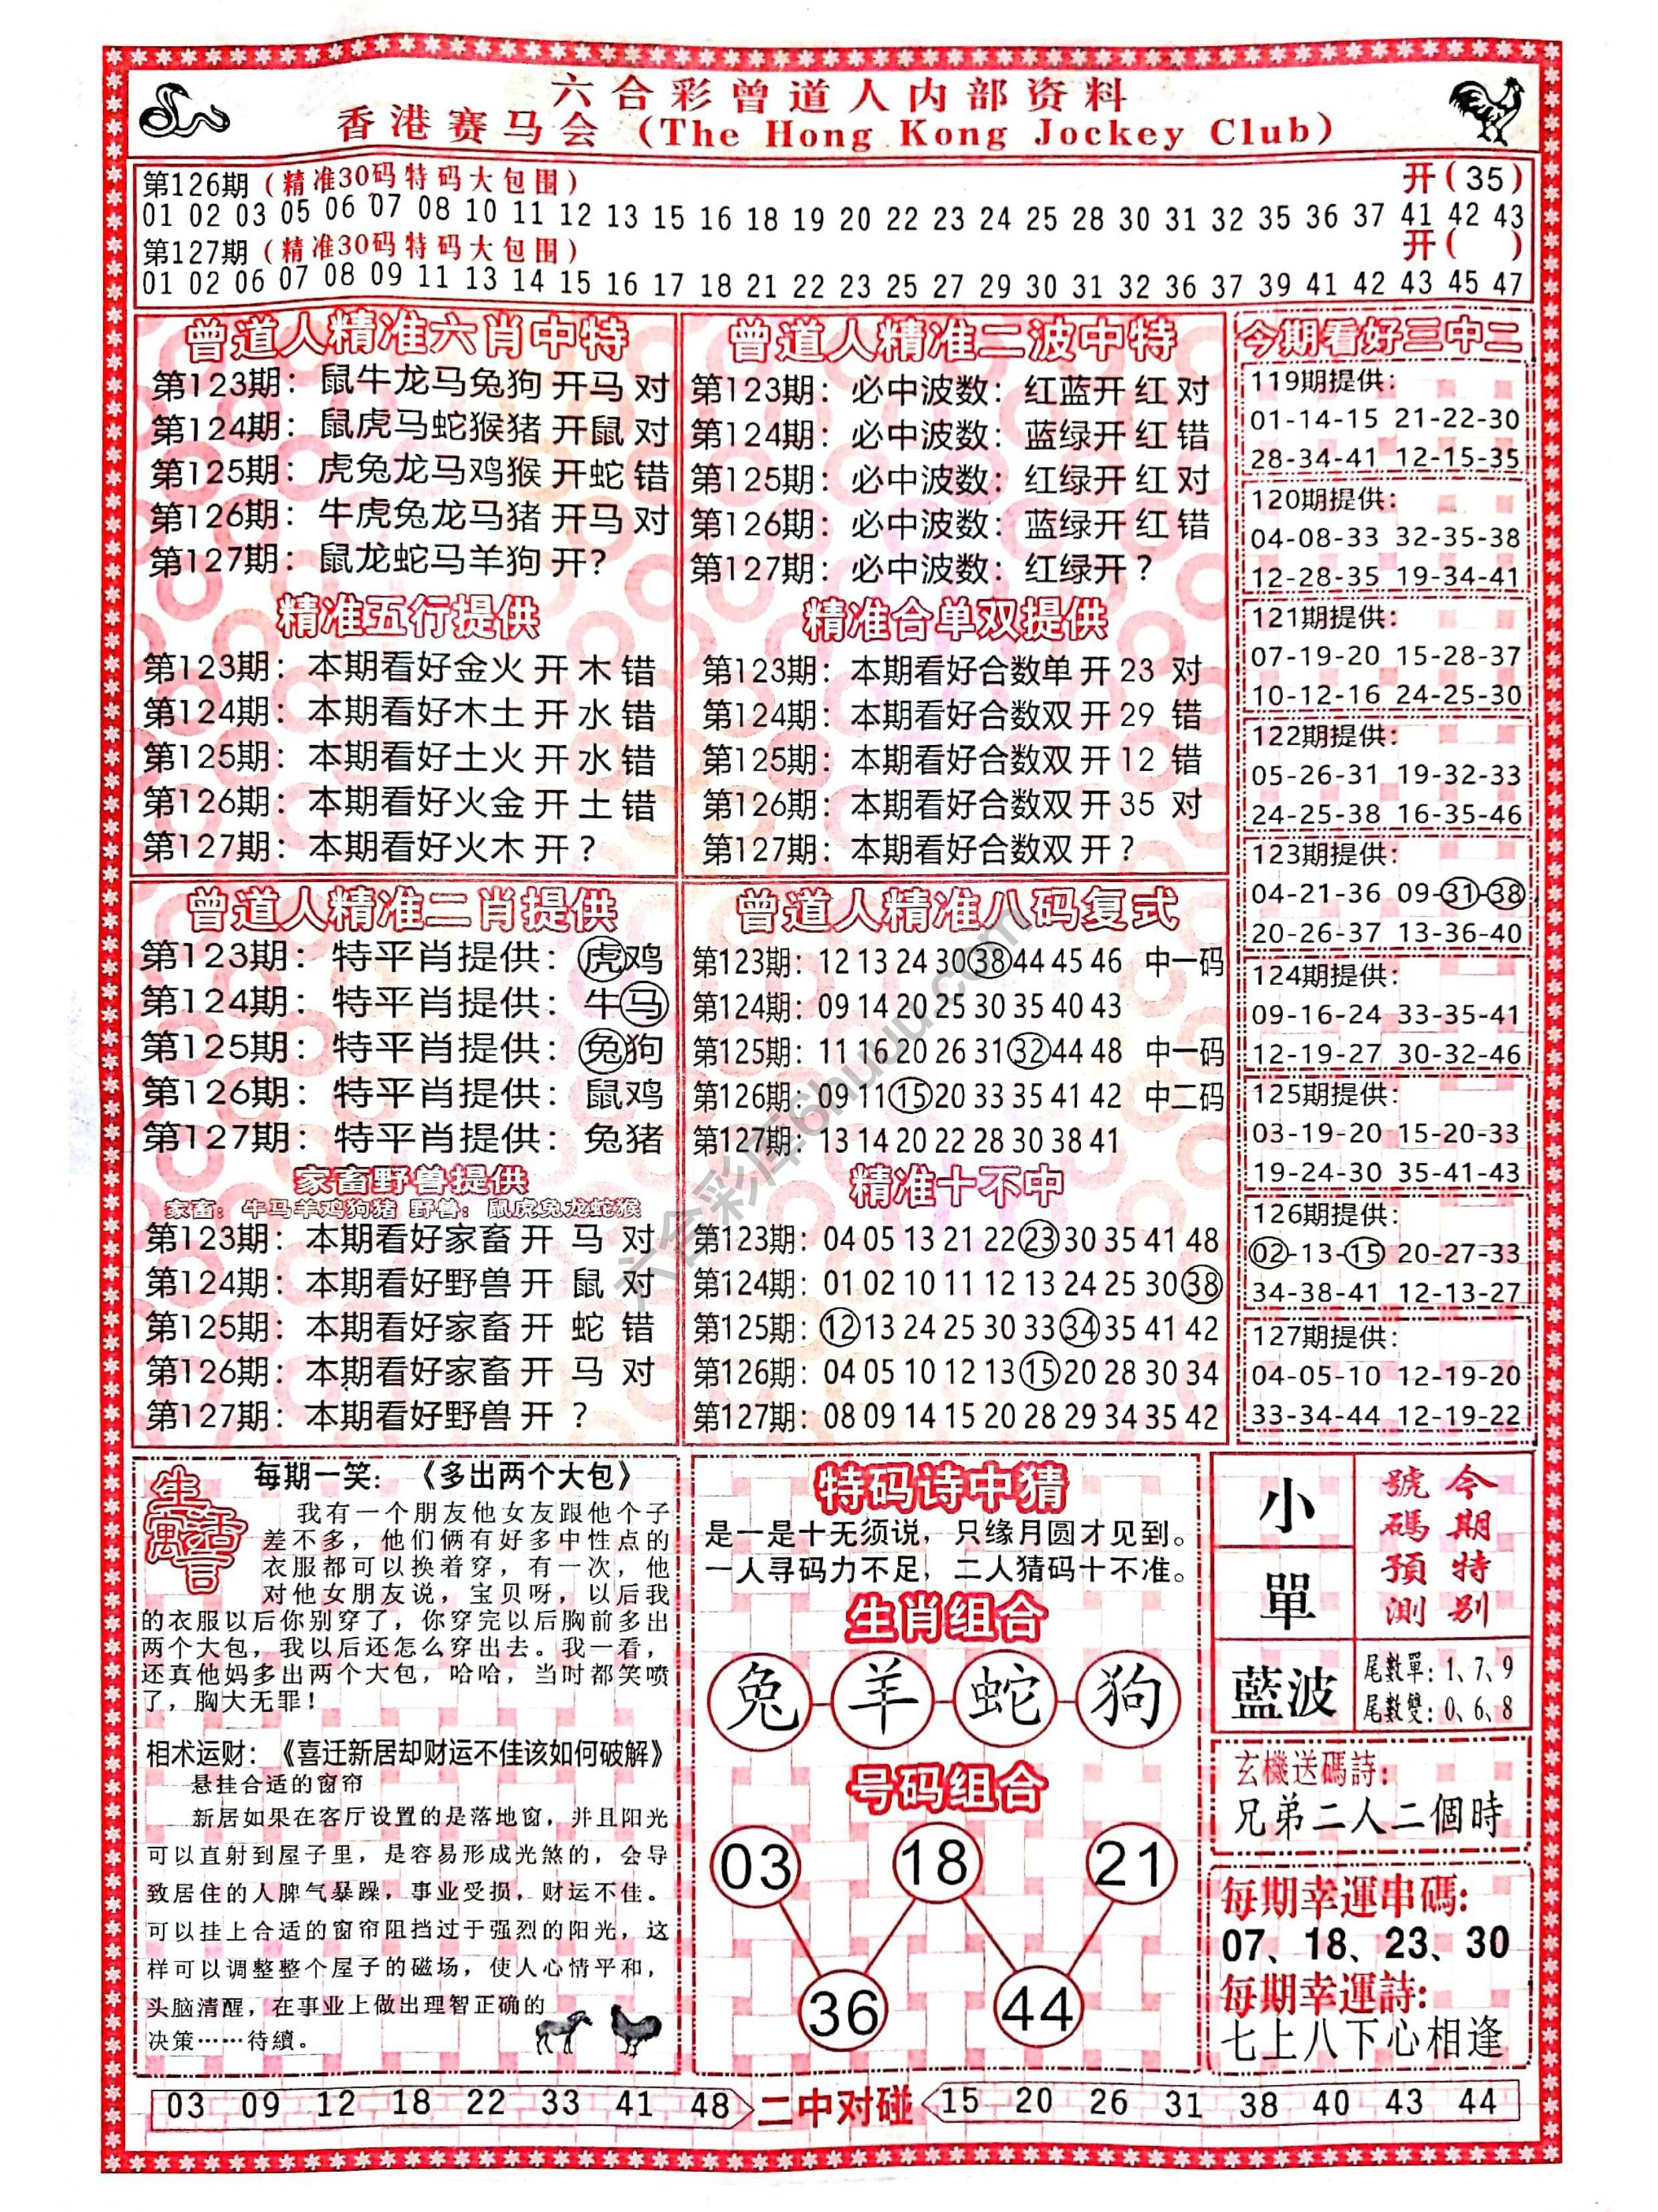 六合彩曾道人内部资料
香港赛马会 (The Hong Kong Jockey Club)
第126期(精准30码特码大包围) 开(35)
01 02 03 05 06 07 08 10 11 12 13 15 16 18 19 20 22 23 24 25 28 30 31 32 35 36 37 41 42 43
第127期(精准30码特码大包围) 开( )
01 02 06 07 08 09 11 13 14 15 16 17 18 21 22 23 25 27 29 30 31 32 36 37 39 41 42 43 45 47
曾道人精准六肖中特
第123期：鼠牛龙马兔狗 开马 对
第124期：鼠虎马蛇猴猪 开鼠 对
第125期：虎兔龙马鸡猴 开蛇 错
第126期：牛虎兔龙马猪 开马 对
第127期：鼠龙蛇马羊狗 开?
精准五行提供
第123期：本期看好金火 开 木 错
第124期：本期看好木土 开 水 错
第125期：本期看好土火 开 水 错
第126期：本期看好火金 开 土 错
第127期：本期看好火木 开 ?
曾道人精准二波中特
第123期：必中波数：红蓝开 红 对
第124期：必中波数：蓝绿开 红 错
第125期：必中波数：红绿开 红 对
第126期：必中波数：蓝绿开 红 错
第127期：必中波数：红绿开 ?
精准合单双提供
第123期：本期看好合数单 开 23 对
第124期：本期看好合数双 开 29 错
第125期：本期看好合数双 开 12 错
第126期：本期看好合数双 开 35 对
第127期：本期看好合数双 开 ?
今期看好三中二
119期提供：
01-14-15 21-22-30
28-34-41 12-15-35
120期提供：
04-08-33 32-35-38
12-28-35 19-34-41
121期提供：
07-19-20 15-28-37
10-12-16 24-25-30
122期提供：
05-26-31 19-32-33
24-25-38 16-35-46
123期提供：
04-21-36 09-31-38
20-26-37 13-36-40
124期提供：
09-16-24 33-35-41
12-19-27 30-32-46
125期提供：
03-19-20 15-20-33
19-24-30 35-41-43
126期提供：
02-13-15 20-27-33
34-38-41 12-13-27
127期提供：
04-05-10 12-19-20
33-34-44 12-19-22
曾道人精准二肖提供
第123期：特平肖提供：虎鸡
第124期：特平肖提供：牛马
第125期：特平肖提供：兔狗
第126期：特平肖提供：鼠鸡
第127期：特平肖提供：兔猪
家畜野兽提供
家畜：牛马羊鸡狗猪 野兽：鼠虎兔龙蛇猴
第123期：本期看好家畜 开 马 对
第124期：本期看好野兽 开 鼠 对
第125期：本期看好家畜 开 蛇 错
第126期：本期看好家畜 开 马 对
第127期：本期看好野兽 开 ?
曾道人精准八码复式
第123期：12 13 24 30 38 44 45 46 中一码
第124期：09 14 20 25 30 35 40 43
第125期：11 16 20 26 31 32 44 48 中一码
第126期：09 11 15 20 33 35 41 42 中二码
第127期：13 14 20 22 28 30 38 41
精准十不中
第123期：04 05 13 21 22 23 30 35 41 48
第124期：01 02 10 11 12 13 24 25 30 38
第125期：12 13 24 25 30 33 34 35 41 42
第126期：04 05 10 12 13 15 20 28 30 34
第127期：08 09 14 15 20 28 29 34 35 42
六合彩库6huuu.com
生活寓言
每期一笑：《多出两个大包》
我有一个朋友他女友跟他个子
差不多，他们俩有好多中性点的
衣服都可以换着穿，有一次，他
对他女朋友说，宝贝呀，以后我
的衣服以后你别穿了，你穿完以后胸前多出
两个大包，我以后还怎么穿出去。我一看，
还真他妈多出两个大包，哈哈，当时都笑喷
了，胸大无罪！
相术运财：《喜迁新居却财运不佳该如何破解》
悬挂合适的窗帘
新居如果在客厅设置的是落地窗，并且阳光
可以直射到屋子里，是容易形成光煞的，会导
致居住的人脾气暴躁，事业受损，财运不佳。
可以挂上合适的窗帘阻挡过于强烈的阳光，这
样可以调整整个屋子的磁场，使人心情平和，
头脑清醒，在事业上做出理智正确的
决策……待續。
特码诗中猜
是一是十无须说，只缘月圆才见到。
一人寻码力不足，二人猜码十不准。
生肖组合
兔 羊 蛇 狗
号码组合
03 18 21
36 44
小
單
藍波
今期特别
號碼預測
尾數單：1、7、9
尾數雙：0、6、8
玄機送碼詩：
兄弟二人二個時
每期幸運串碼：
07、18、23、30
每期幸運詩：
七上八下心相逢
03 09 12 18 22 33 41 48 二中对碰 15 20 26 31 38 40 43 44